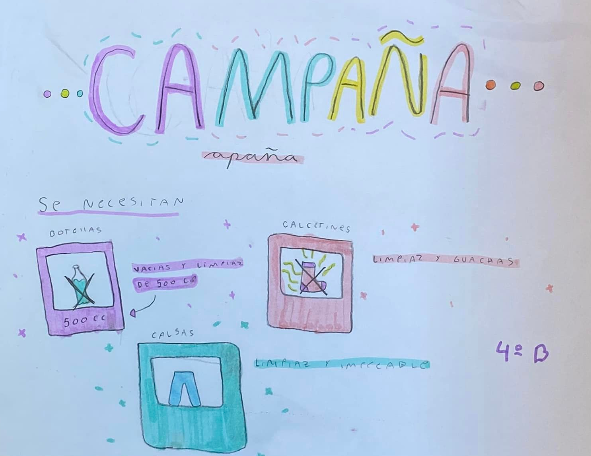 CAMPAÑA
apaña
SE NECESITAN
BOTELLAS
VACIAS Y LIMPIAZ
DE 500 CC
500 CC
CALCETINES
LIMPIAZ Y GUACHAS
CALSAS
LIMPIAZ Y IMPECABLE
4º B